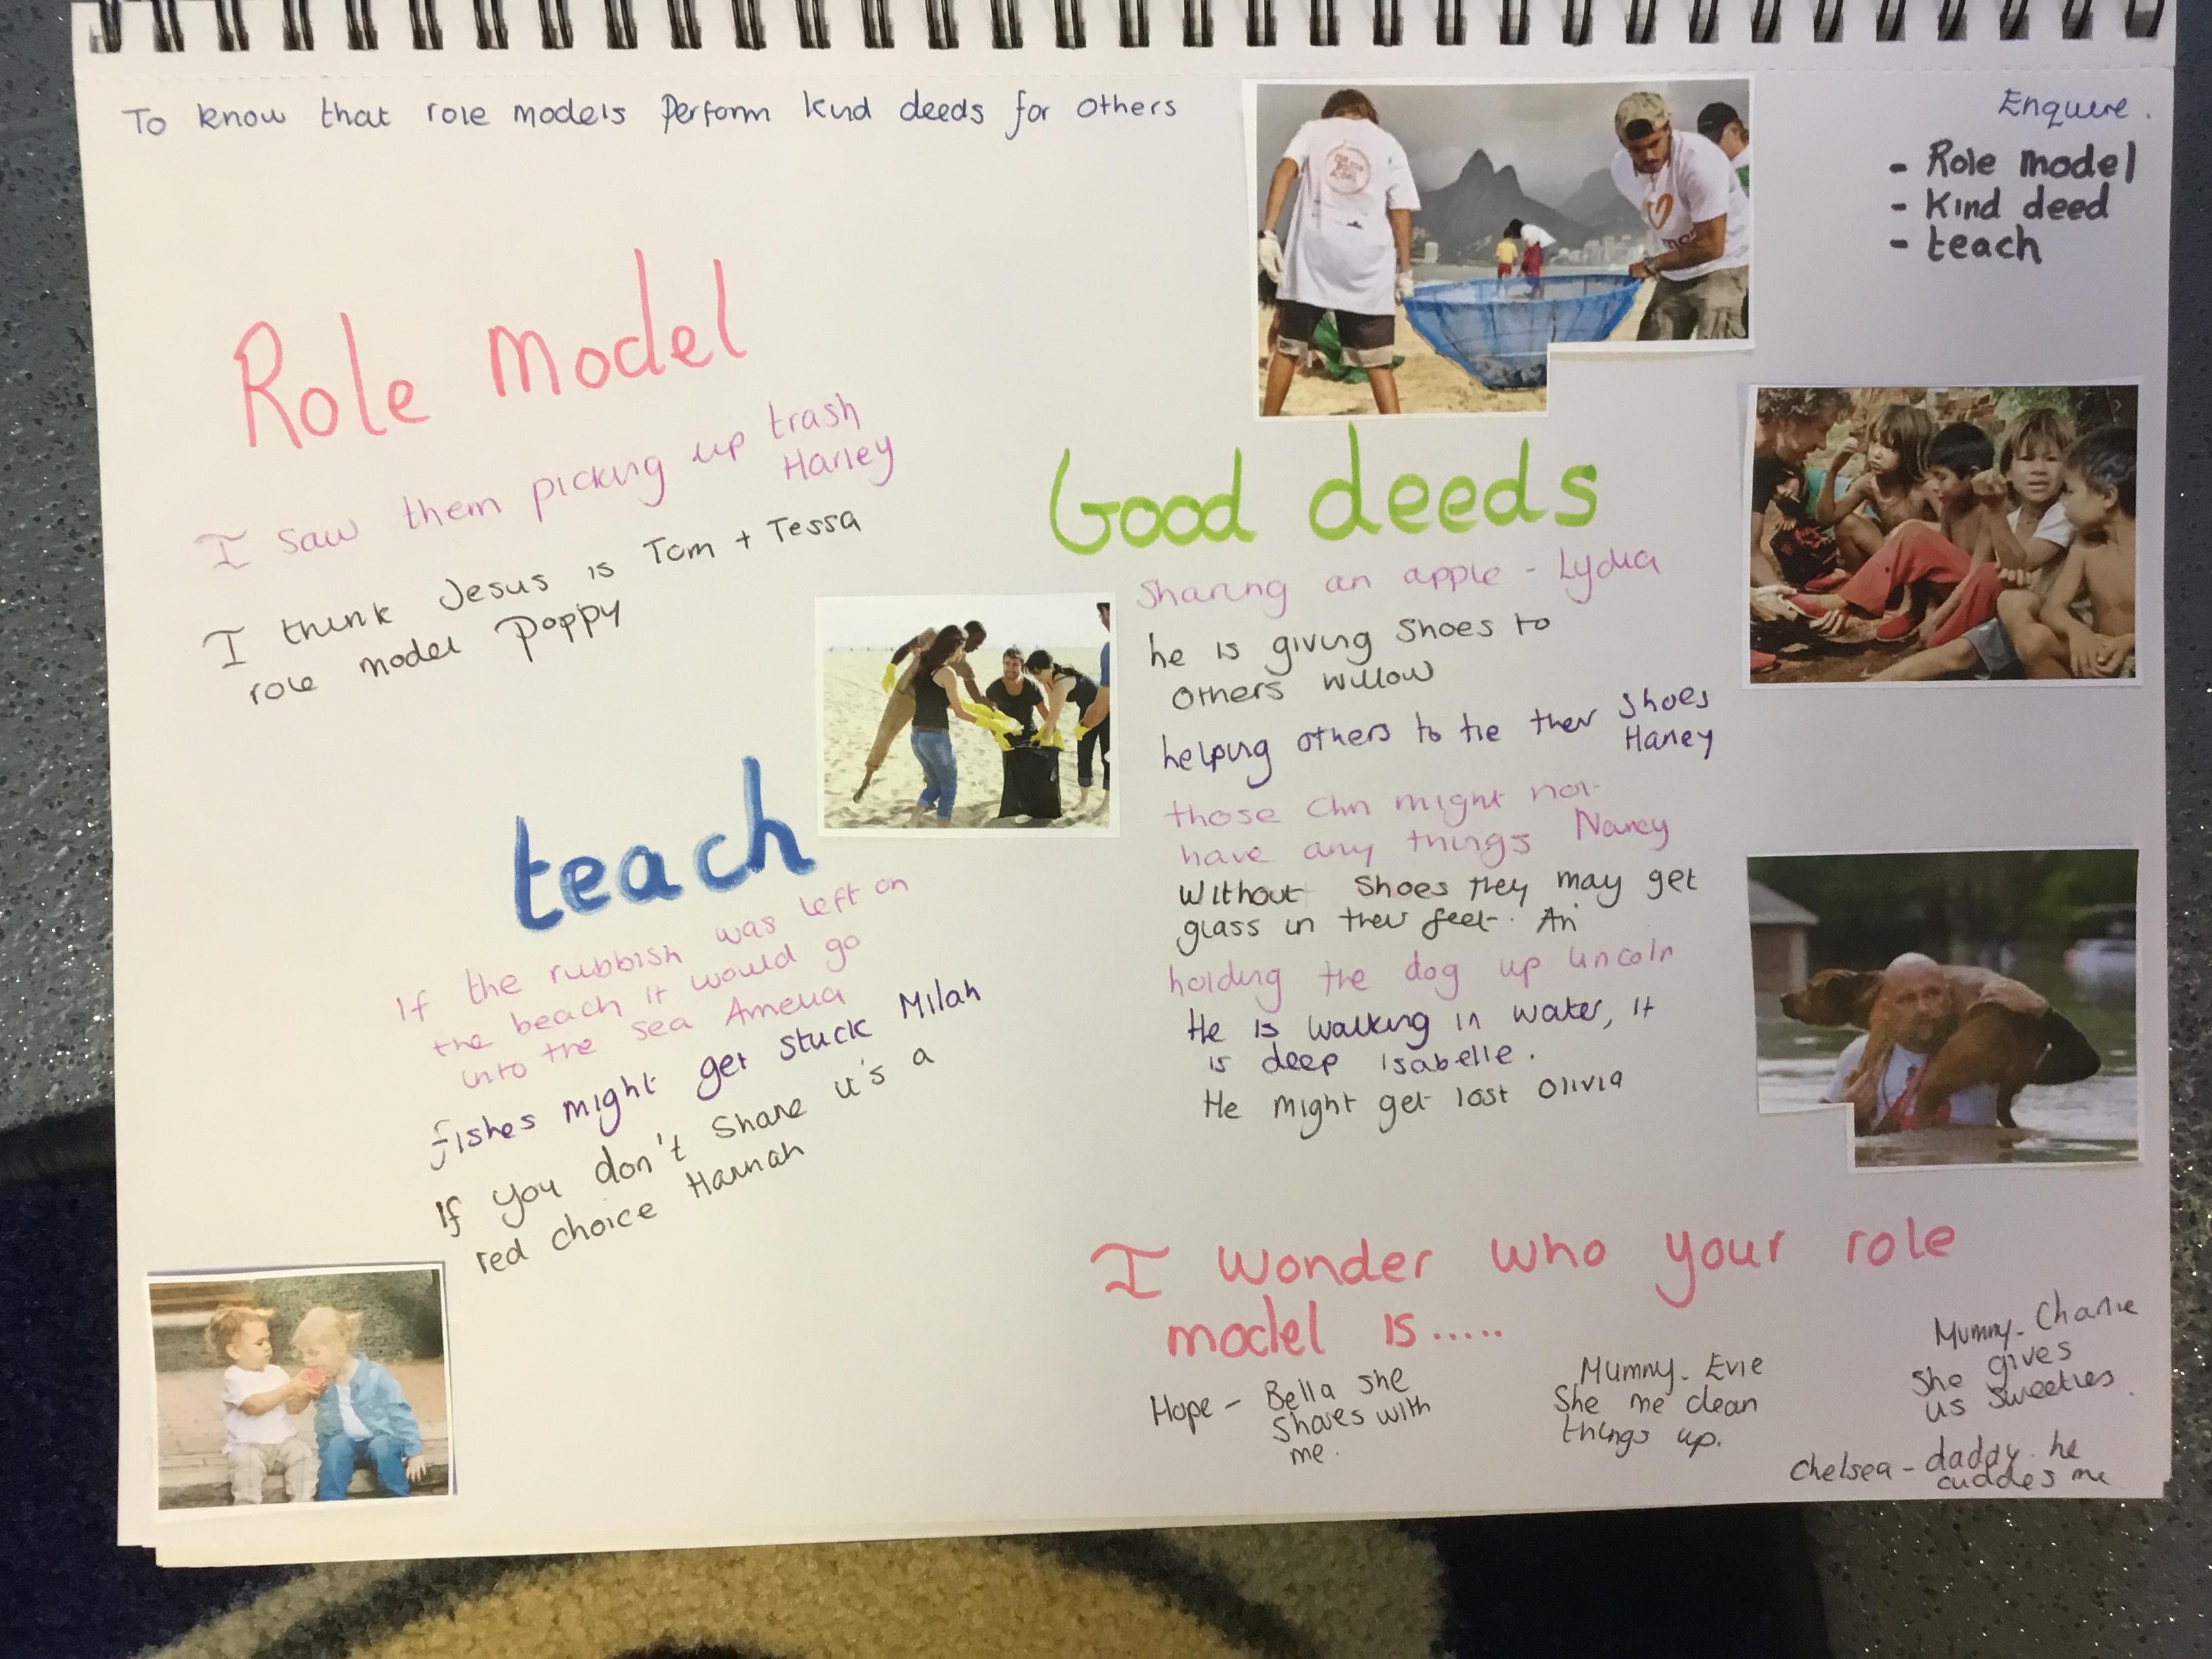 To know that role models perform kind deeds for others
Enquire.
- Role model
- Kind deed
- teach
Role model
I saw them picking up trash
Harley
I think Jesus is Tom + Tessa
role model Poppy
teach
If the rubbish was left on
the beach it would go
into the sea Amelia
fishes might get stuck Milah
If you don't share it's a
red choice Hannah
Good deeds
Sharing an apple - Lydia
he is giving shoes to
others Willow
helping others to tie their shoes
Harley
those chn might not
have any things Nancy
Without shoes they may get
glass in their feet. An
holding the dog up Lincoln
He is walking in water, it
is deep Isabelle.
He might get lost Olivia
I wonder who your role
model is.....
Hope - Bella she
shares with
me.
Mummy - Evie
She me clean
things up.
Mummy - Charlie
She gives
us sweeties.
Chelsea - daddy. he
cuddles me